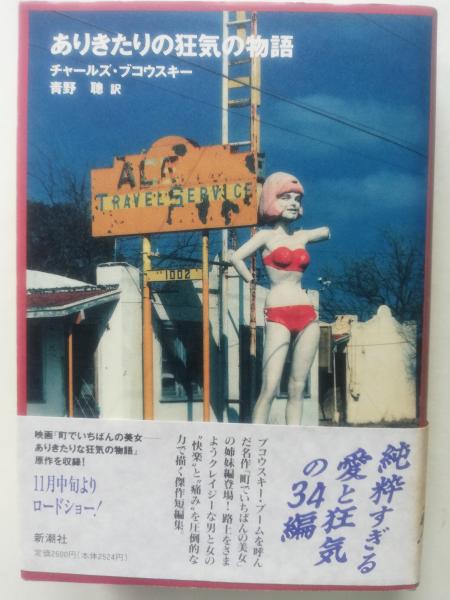 ありきたりの狂気の物語
チャールズ・ブコウスキー
青野 聰 訳
ACE
TRAVEL SERVICE
1002
純粋すぎる
愛と狂気
の34編
ブコウスキー・ブームを呼ん
だ名作『町でいちばんの美女』
の姉妹編登場！路上をさま
ようクレイジーな男と女の
“快楽”と“痛み”を圧倒的な
力で描く傑作短編集。
映画「町でいちばんの美女──
ありきたりな狂気の物語」
原作を収録！
11月中旬より
ロードショー！
新潮社
定価2600円（本体2524円）